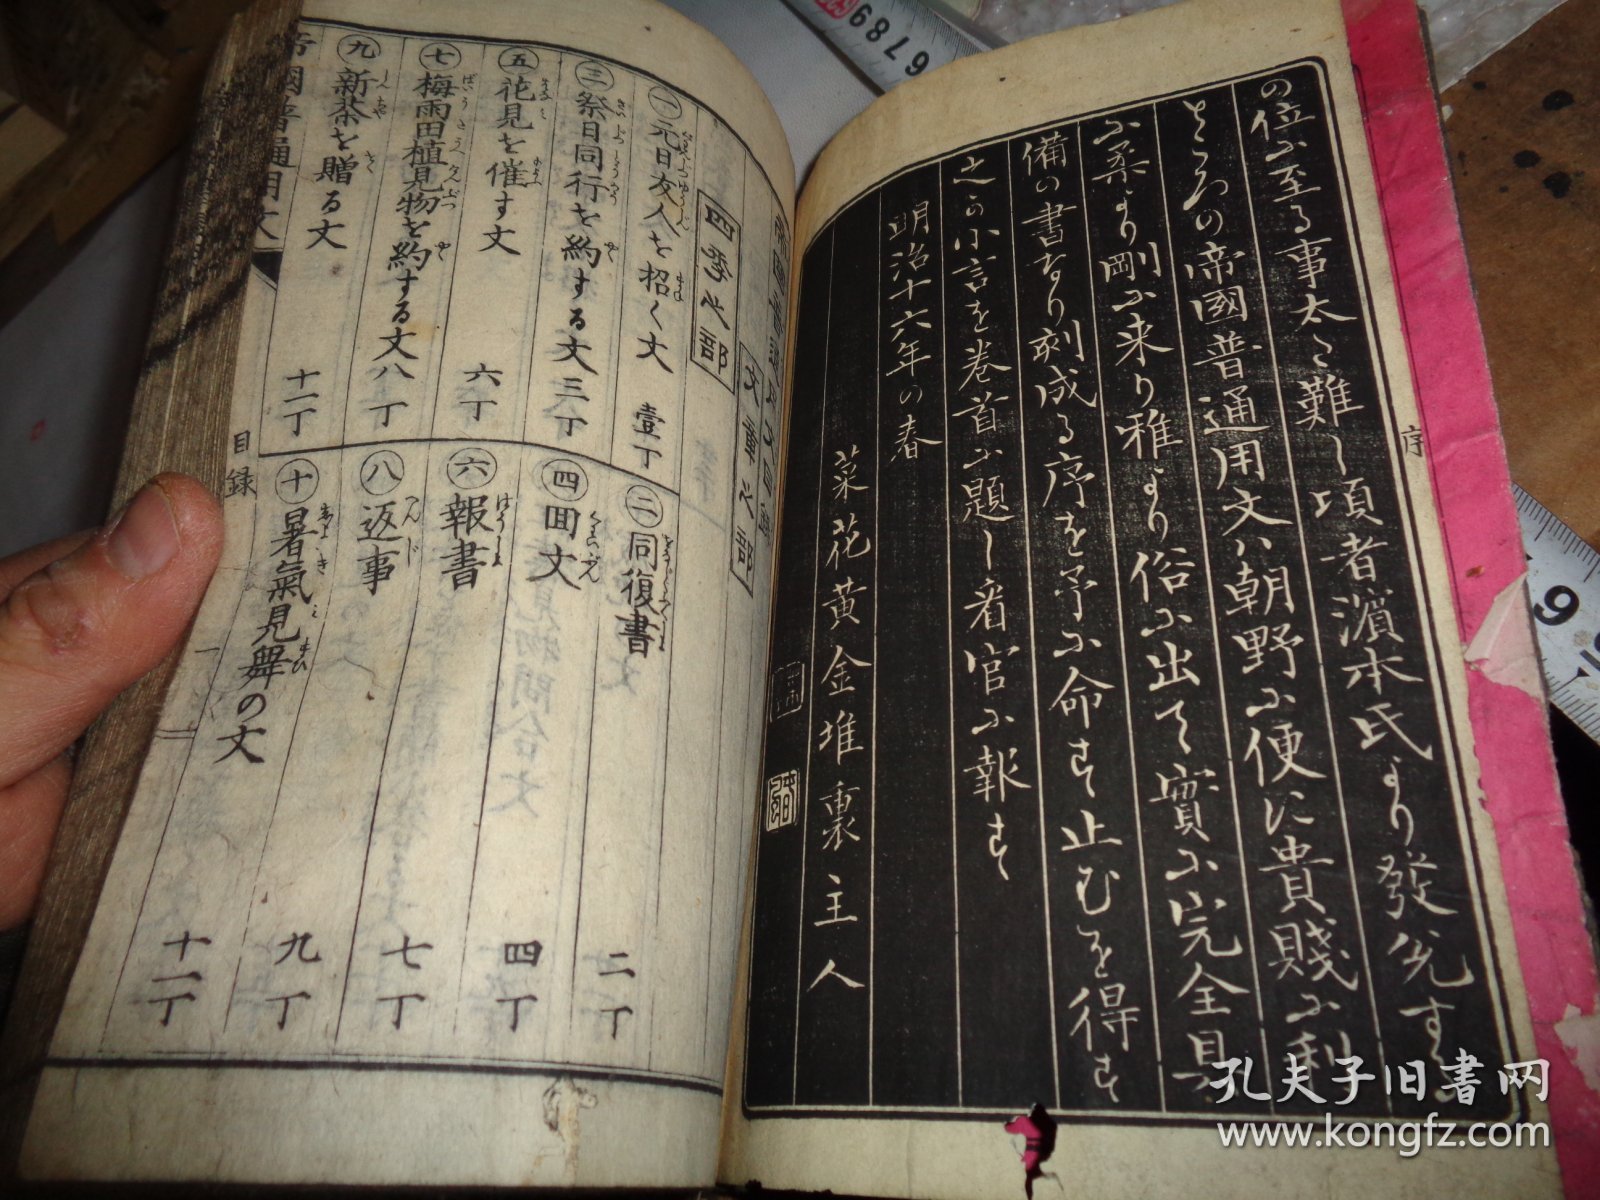 序
の位に至る事太た難し頃者濱本氏より發兌する
ところの帝國普通用文ハ朝野に便に貴賤に利
に柔より剛に来り雅より俗に出て實に完全具
備の書なり刻成る序を予に命す止むを得す
之の小言を巻首に題し看官に報す
明治十六年の春
菜花黄金堆裏主人
文章之部
四季之部
㊀元日友人を招く文 壹丁
㊁同復書 二丁
㊂祭日同行を約する文 三丁
㊃回文 四丁
㊄花見を催す文 六丁
㊅報書 七丁
㊆梅雨田植見物を約する文 八丁
㊇返事 九丁
㊈新茶を贈る文 十一丁
㊉暑氣見舞の文 十二丁
帝國普通用文
目録
一
6 7 8 9
9
孔夫子旧書网
www.kongfz.com